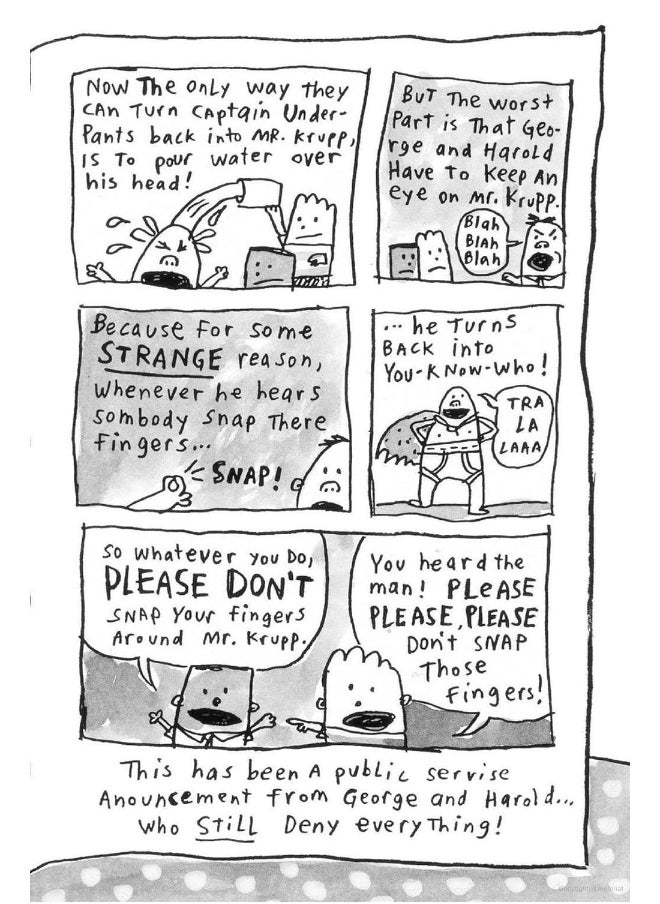 Now The only way they
can Turn Captain Under-
Pants back into MR. Krupp,
is To pour water over
his head!
But The worst
Part is That Geo-
rge and Harold
Have to Keep An
eye on Mr. Krupp.
Blah
BLAH
Blah
Because for some
STRANGE reason,
Whenever he hears
sombody Snap There
fingers...
SNAP!
... he Turns
BACK into
You-Know-Who!
TRA
LA
LAAA
So whatever you Do,
PLEASE DON'T
SNAP Your fingers
Around Mr. Krupp.
You heard the
man! PLeASE
PLEASE, PLEASE
DON't SNAP
Those
fingers!
This has been A public servise
Anouncement from George and Harold...
Who STiLL Deny everyThing!
Copyrighted material